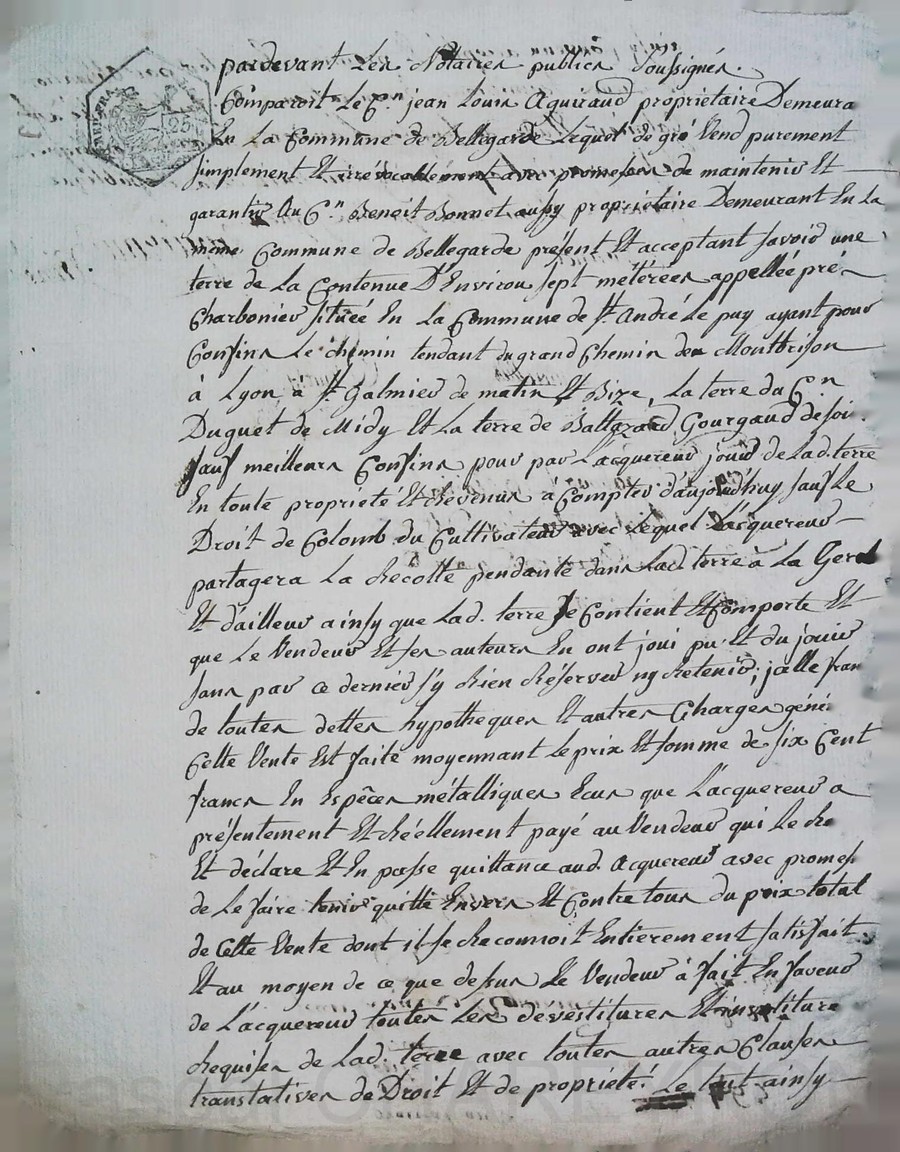 pardevant Les Notaires publics Soussignés.
Comparoit Le C.en jean Louis Aguiraud propriétaire Demeura
En La Commune de Bellegarde Lequel de gré Vend purement
simplement Et irrévocablement avec promesse de maintenir Et
garantir Au C.en Benoit Bonnet aussy propriétaire Demeurant En La
meme Commune de Bellegarde présent Et acceptant savoir une
terre de La Contenue D'Environ sept métérées appellée pré
Charbonier située En La Commune de St. André Le puy ayant pour
Confins Le chemin tendant du grand Chemin de Montbrison
à Lyon à St. Galmier de matin Et Bize, La terre du C.en
Duguet de Midy Et La terre de Baltazard Gourgaud de soir.
Sauf meilleurs Confins pour par L'acquereur jouir de Lad. terre
En toute propriété Et Revenus à Compter d'aujourd'huy sauf Le
Droit de Colomb du Cultivateur avec Lequel L'acquereur
partagera La Recolte pendante dans Lad. terre à La Gerb
Et d'ailleur ainsy que Lad. terre se Contient Et Comporte Et
que Le Vendeur Et ses auteurs En ont joui pu Et du jouir
sans par ce dernier s'y Rien Réserver ny Retenir; jcelle fran
de toutes dettes hypotheques Et autres Charges géné
Cette Vente Est faite moyennant le prix Et somme de six Cent
francs En Espêces métalliques Ecus que L'acquereur a
présentement Et Réellement payé au Vendeur qui Le Re
Et déclare Et En passe quittance aud. acquereur avec promes.
de Le faire tenir quitte Envers Et Contre tous du prix total
de Cette Vente dont il se Reconnoit Entierement satisfait.
Et au moyen de ce que dessus Le Vendeur à fait En faveur
de L'acquereur toutes Les devestitures Et investiture
Requises de Lad. terre avec toutes autres Clauses
translatives de Droit Et de propriété! Le tout ainsy